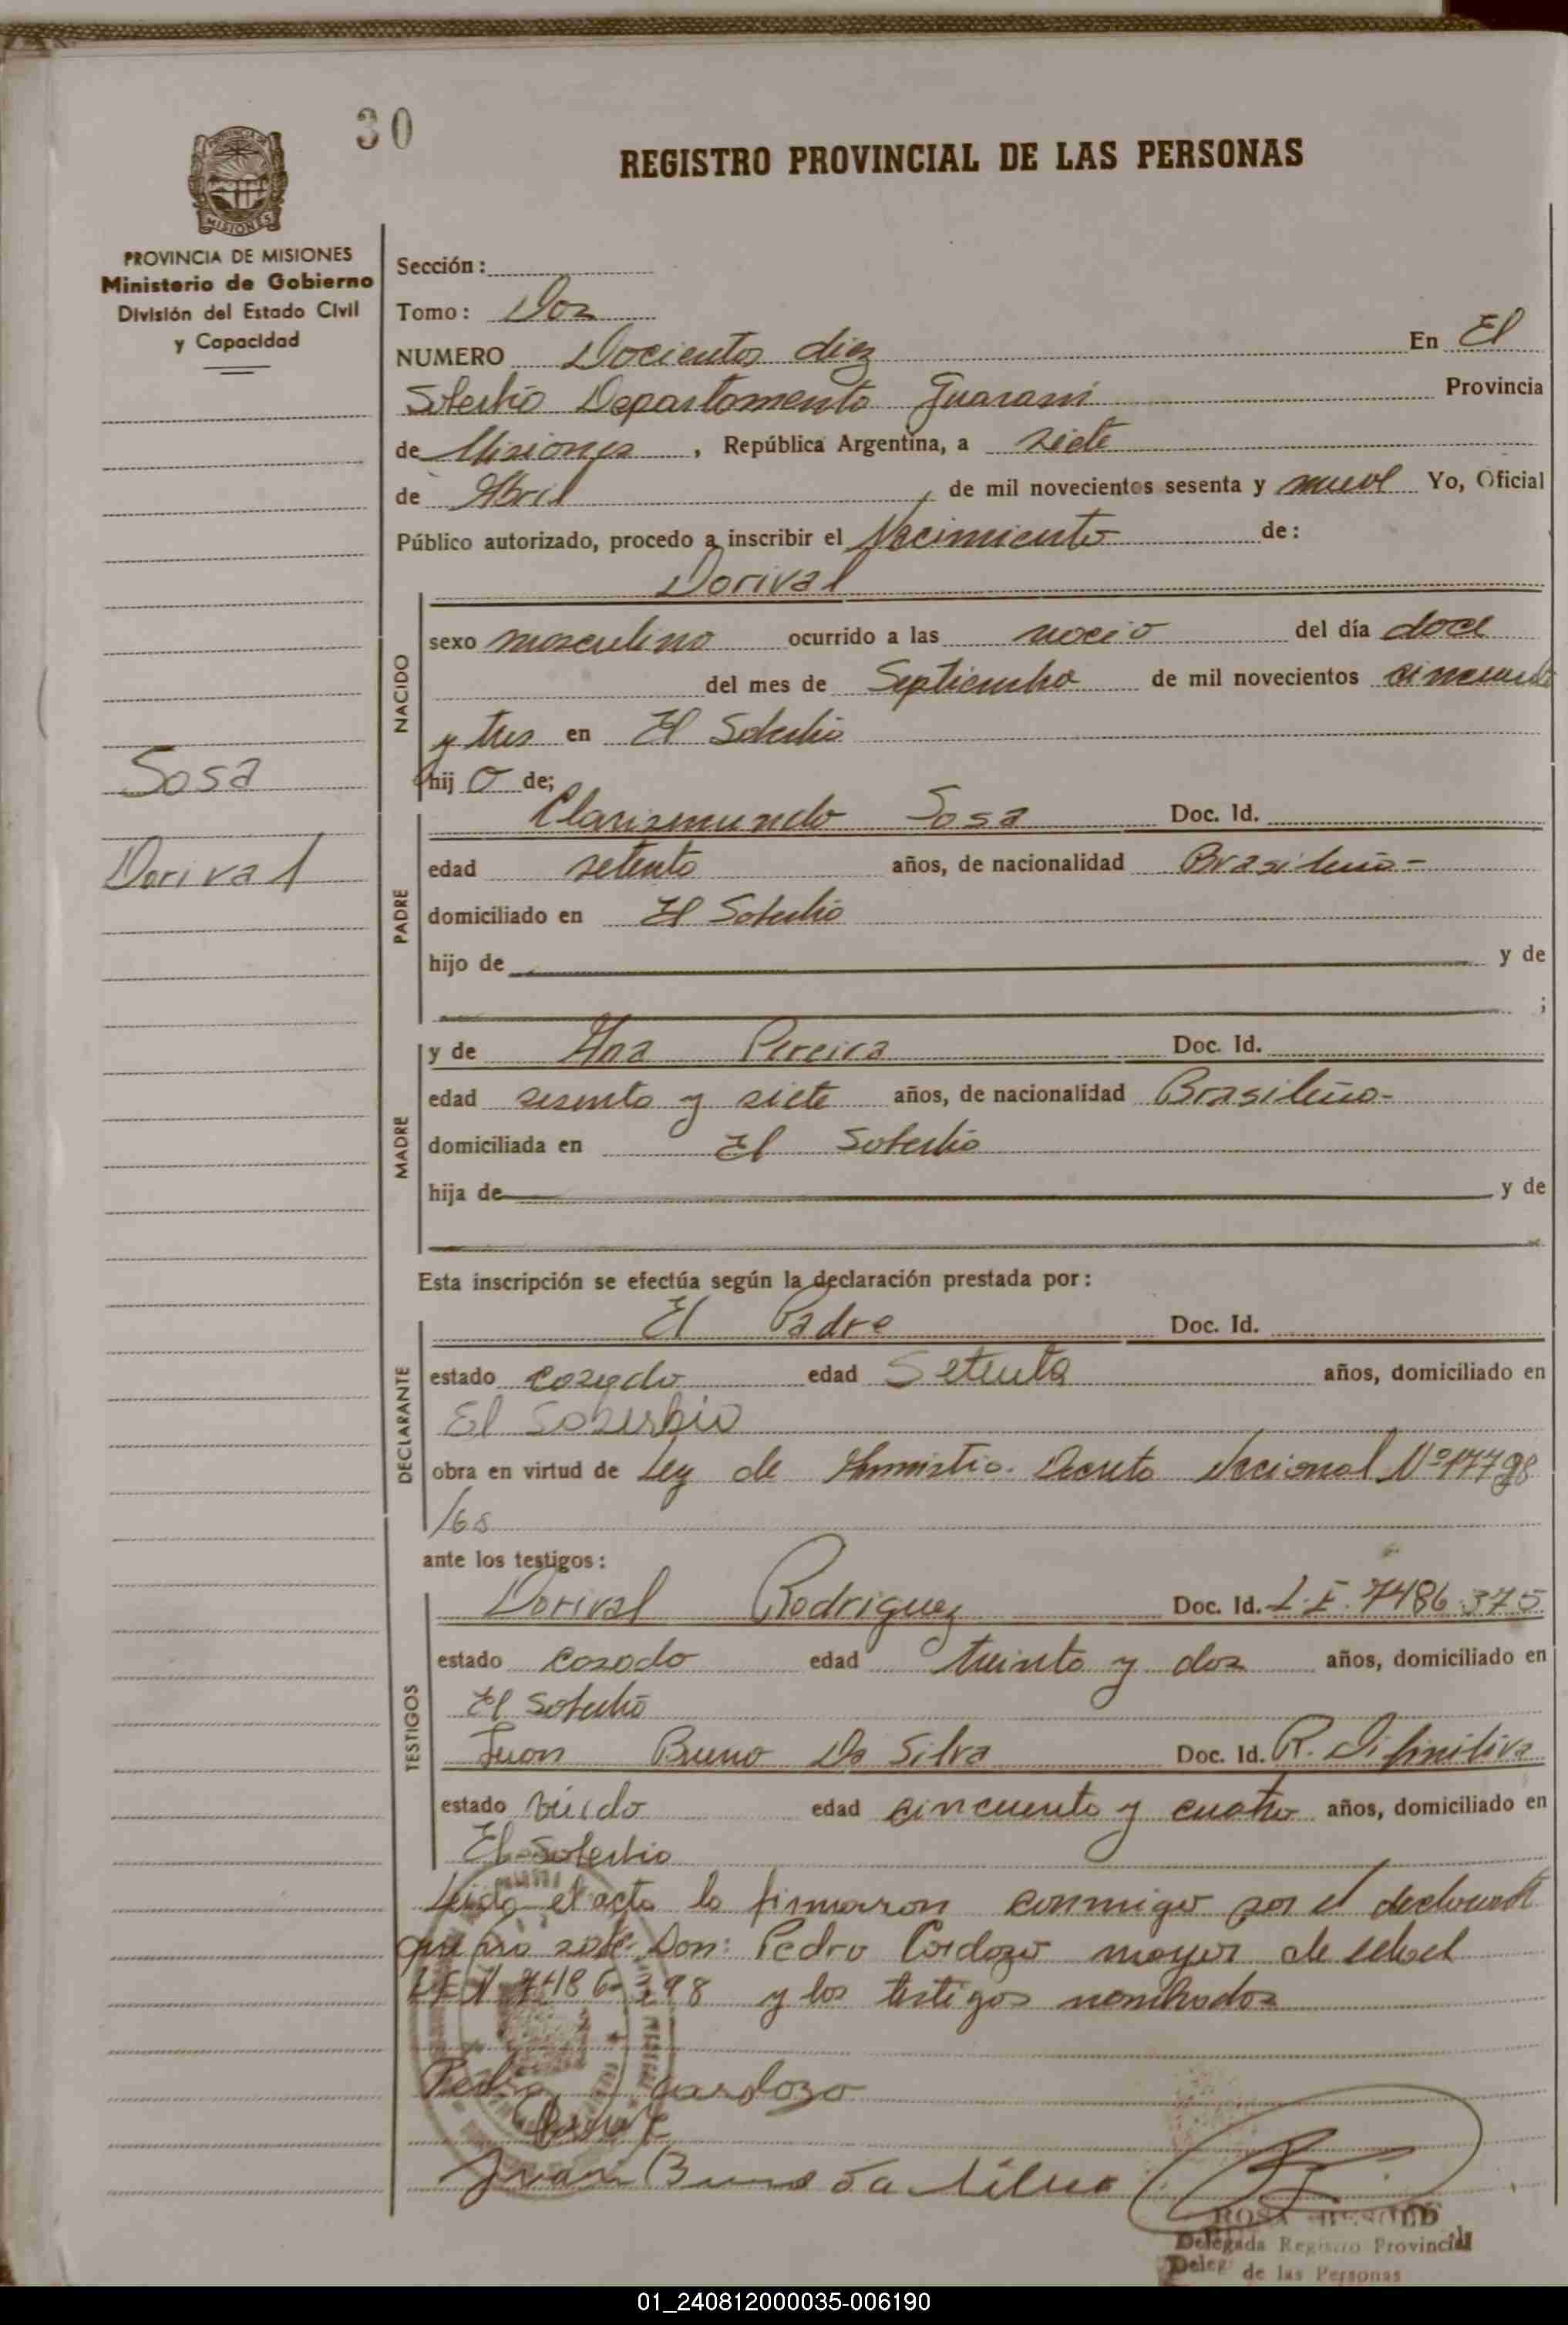 30
REGISTRO PROVINCIAL DE LAS PERSONAS
PROVINCIA DE MISIONES
Ministerio de Gobierno
División del Estado Civil
y Capacidad
Sección:
Tomo: Dos
NUMERO Docientos diez En El
Soberbio Departamento Guarani Provincia
de Misiones, República Argentina, a siete
de Abril, de mil novecientos sesenta y nueve Yo, Oficial
Público autorizado, procedo a inscribir el Nacimiento de:
Dorival
NACIDO
sexo masculino ocurrido a las del día doce
del mes de Septiembre de mil novecientos cincuenta
y tres en El Soberbio
hijo de;
Sosa
Dorival
PADRE
Clarismundo Sosa Doc. Id.
edad setenta años, de nacionalidad Brasileño-
domiciliado en El Soberbio
hijo de y de
;
MADRE
y de Ana Pereira Doc. Id.
edad sesenta y siete años, de nacionalidad Brasileña-
domiciliada en El Soberbio
hija de y de
Esta inscripción se efectúa según la declaración prestada por:
DECLARANTE
El Padre Doc. Id.
estado casado edad Setenta años, domiciliado en
El Soberbio
obra en virtud de Ley de Amnistia. Decreto Nacional Nº 17798
/68
ante los testigos:
TESTIGOS
Dorival Rodriguez Doc. Id. L.E. 7486.375
estado casado edad treinta y dos años, domiciliado en
El Soberbio
Juan Bruno Da Silva Doc. Id. R. Difinitiva
estado viudo edad cincuenta y cuatro años, domiciliado en
El Soberbio
Leida el acta la firmaron conmigo por el declarante
que no sabe Don: Pedro Cardozo mayor de edad
y los testigos nombrados
Pedro Cardozo
Juan Bruno da Silva
ROSA
Delegada Registro Provincial
Deleg de las Personas
01_240812000035-006190